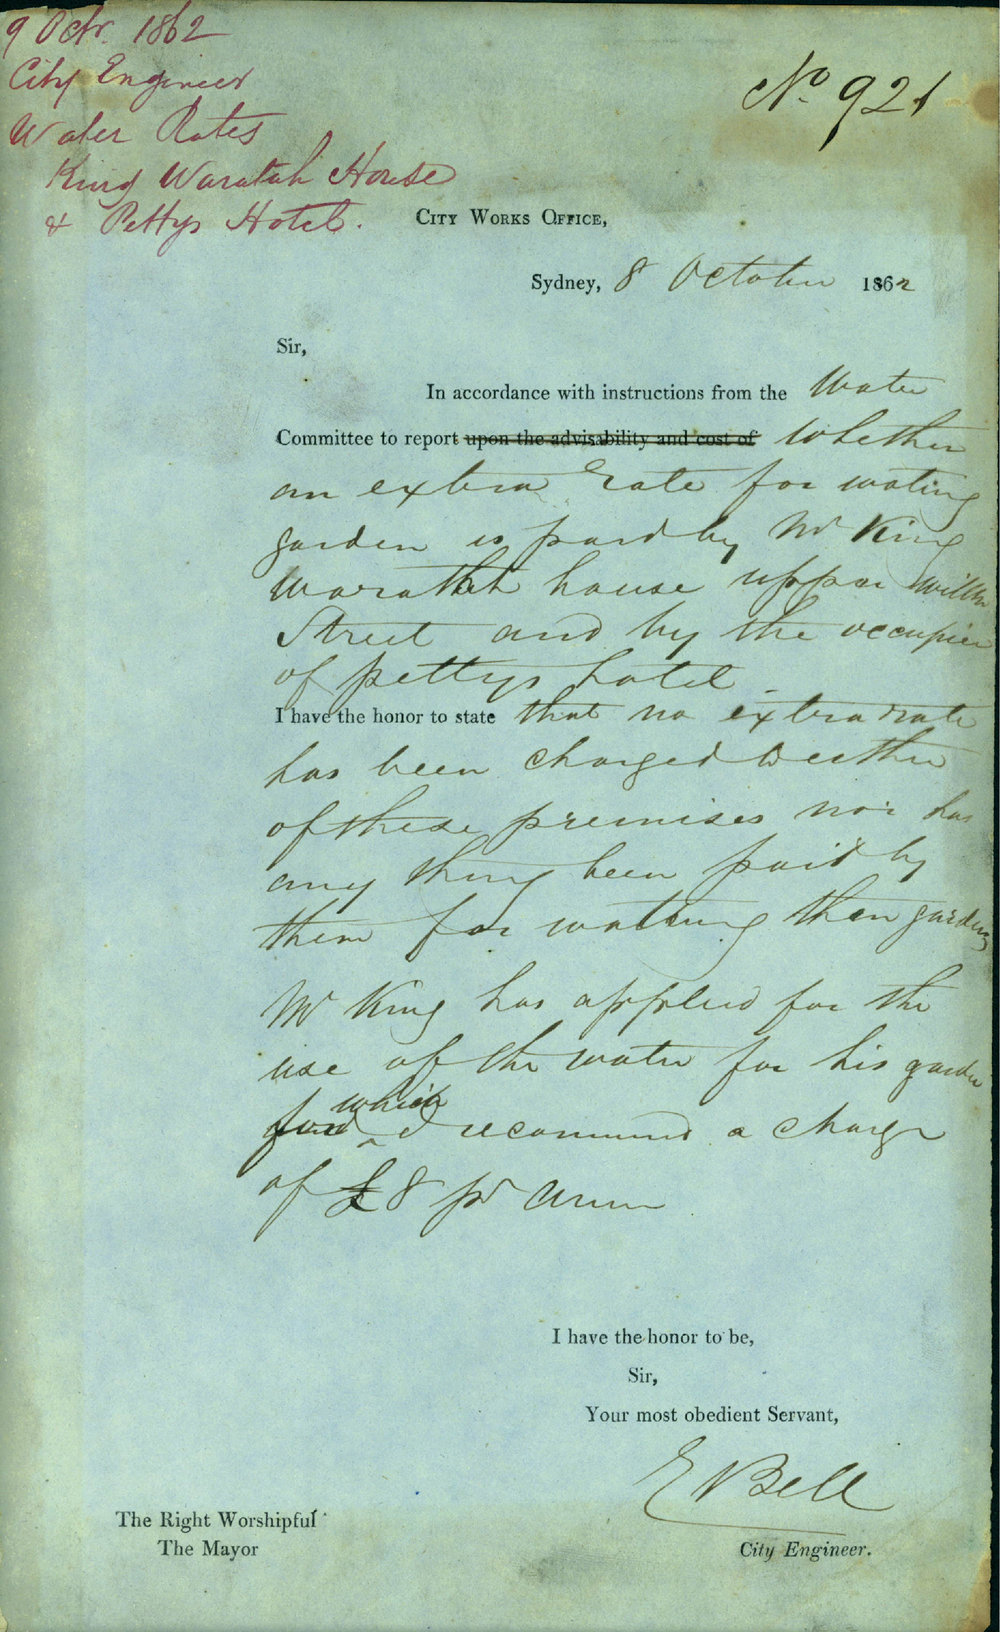 9 Octr. 1862
City Engineer
Water Rates
King Waratah House
& Pettys Hotel.
No. 921
CITY WORKS OFFICE,
Sydney, 8 October 1862
Sir,
In accordance with instructions from the Water
Committee to report upon the advisability and cost of Whether
an extra rate for wating
garden is paid by Mr King
Warathah house upper William
Street and by the occupier
of pettys hotel
I have the honor to state that no extra rate
has been charged to either
of these premises nor has
any thing been paid by
them for watering their gardens
Mr King has applied for the
use of the water for his garden
for which I recommend a charge
of £8 pr annum
I have the honor to be,
Sir,
Your most obedient Servant,
E Bell
City Engineer.
The Right Worshipful
The Mayor